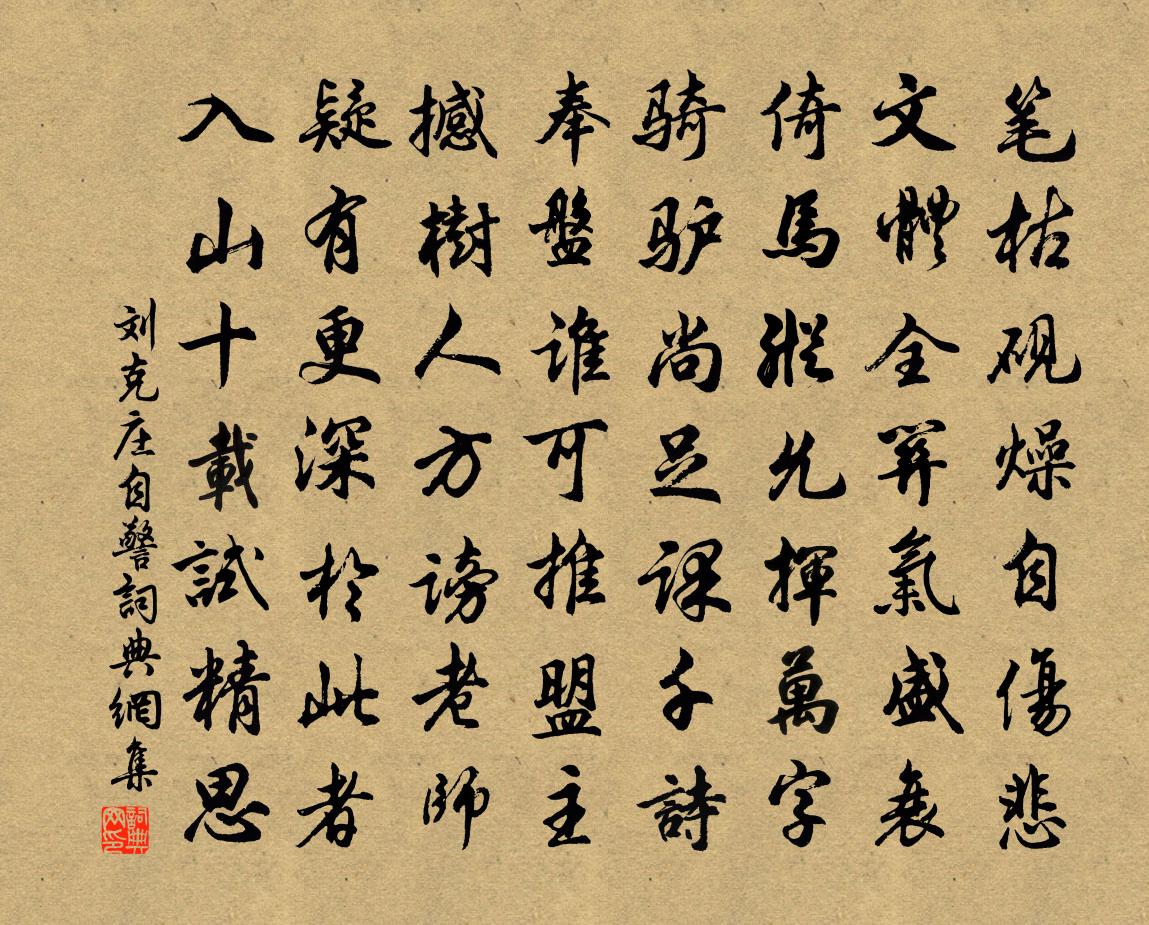 笔枯砚燥自傷悲
文體全関氣盛衰
倚馬縱允揮萬字
骑驴尚足课千詩
奉盤谁可推盟主
撼樹人方谤老師
疑有更深於此者
入山十載試精思
刘克庄自警詞典網集
詞典网印